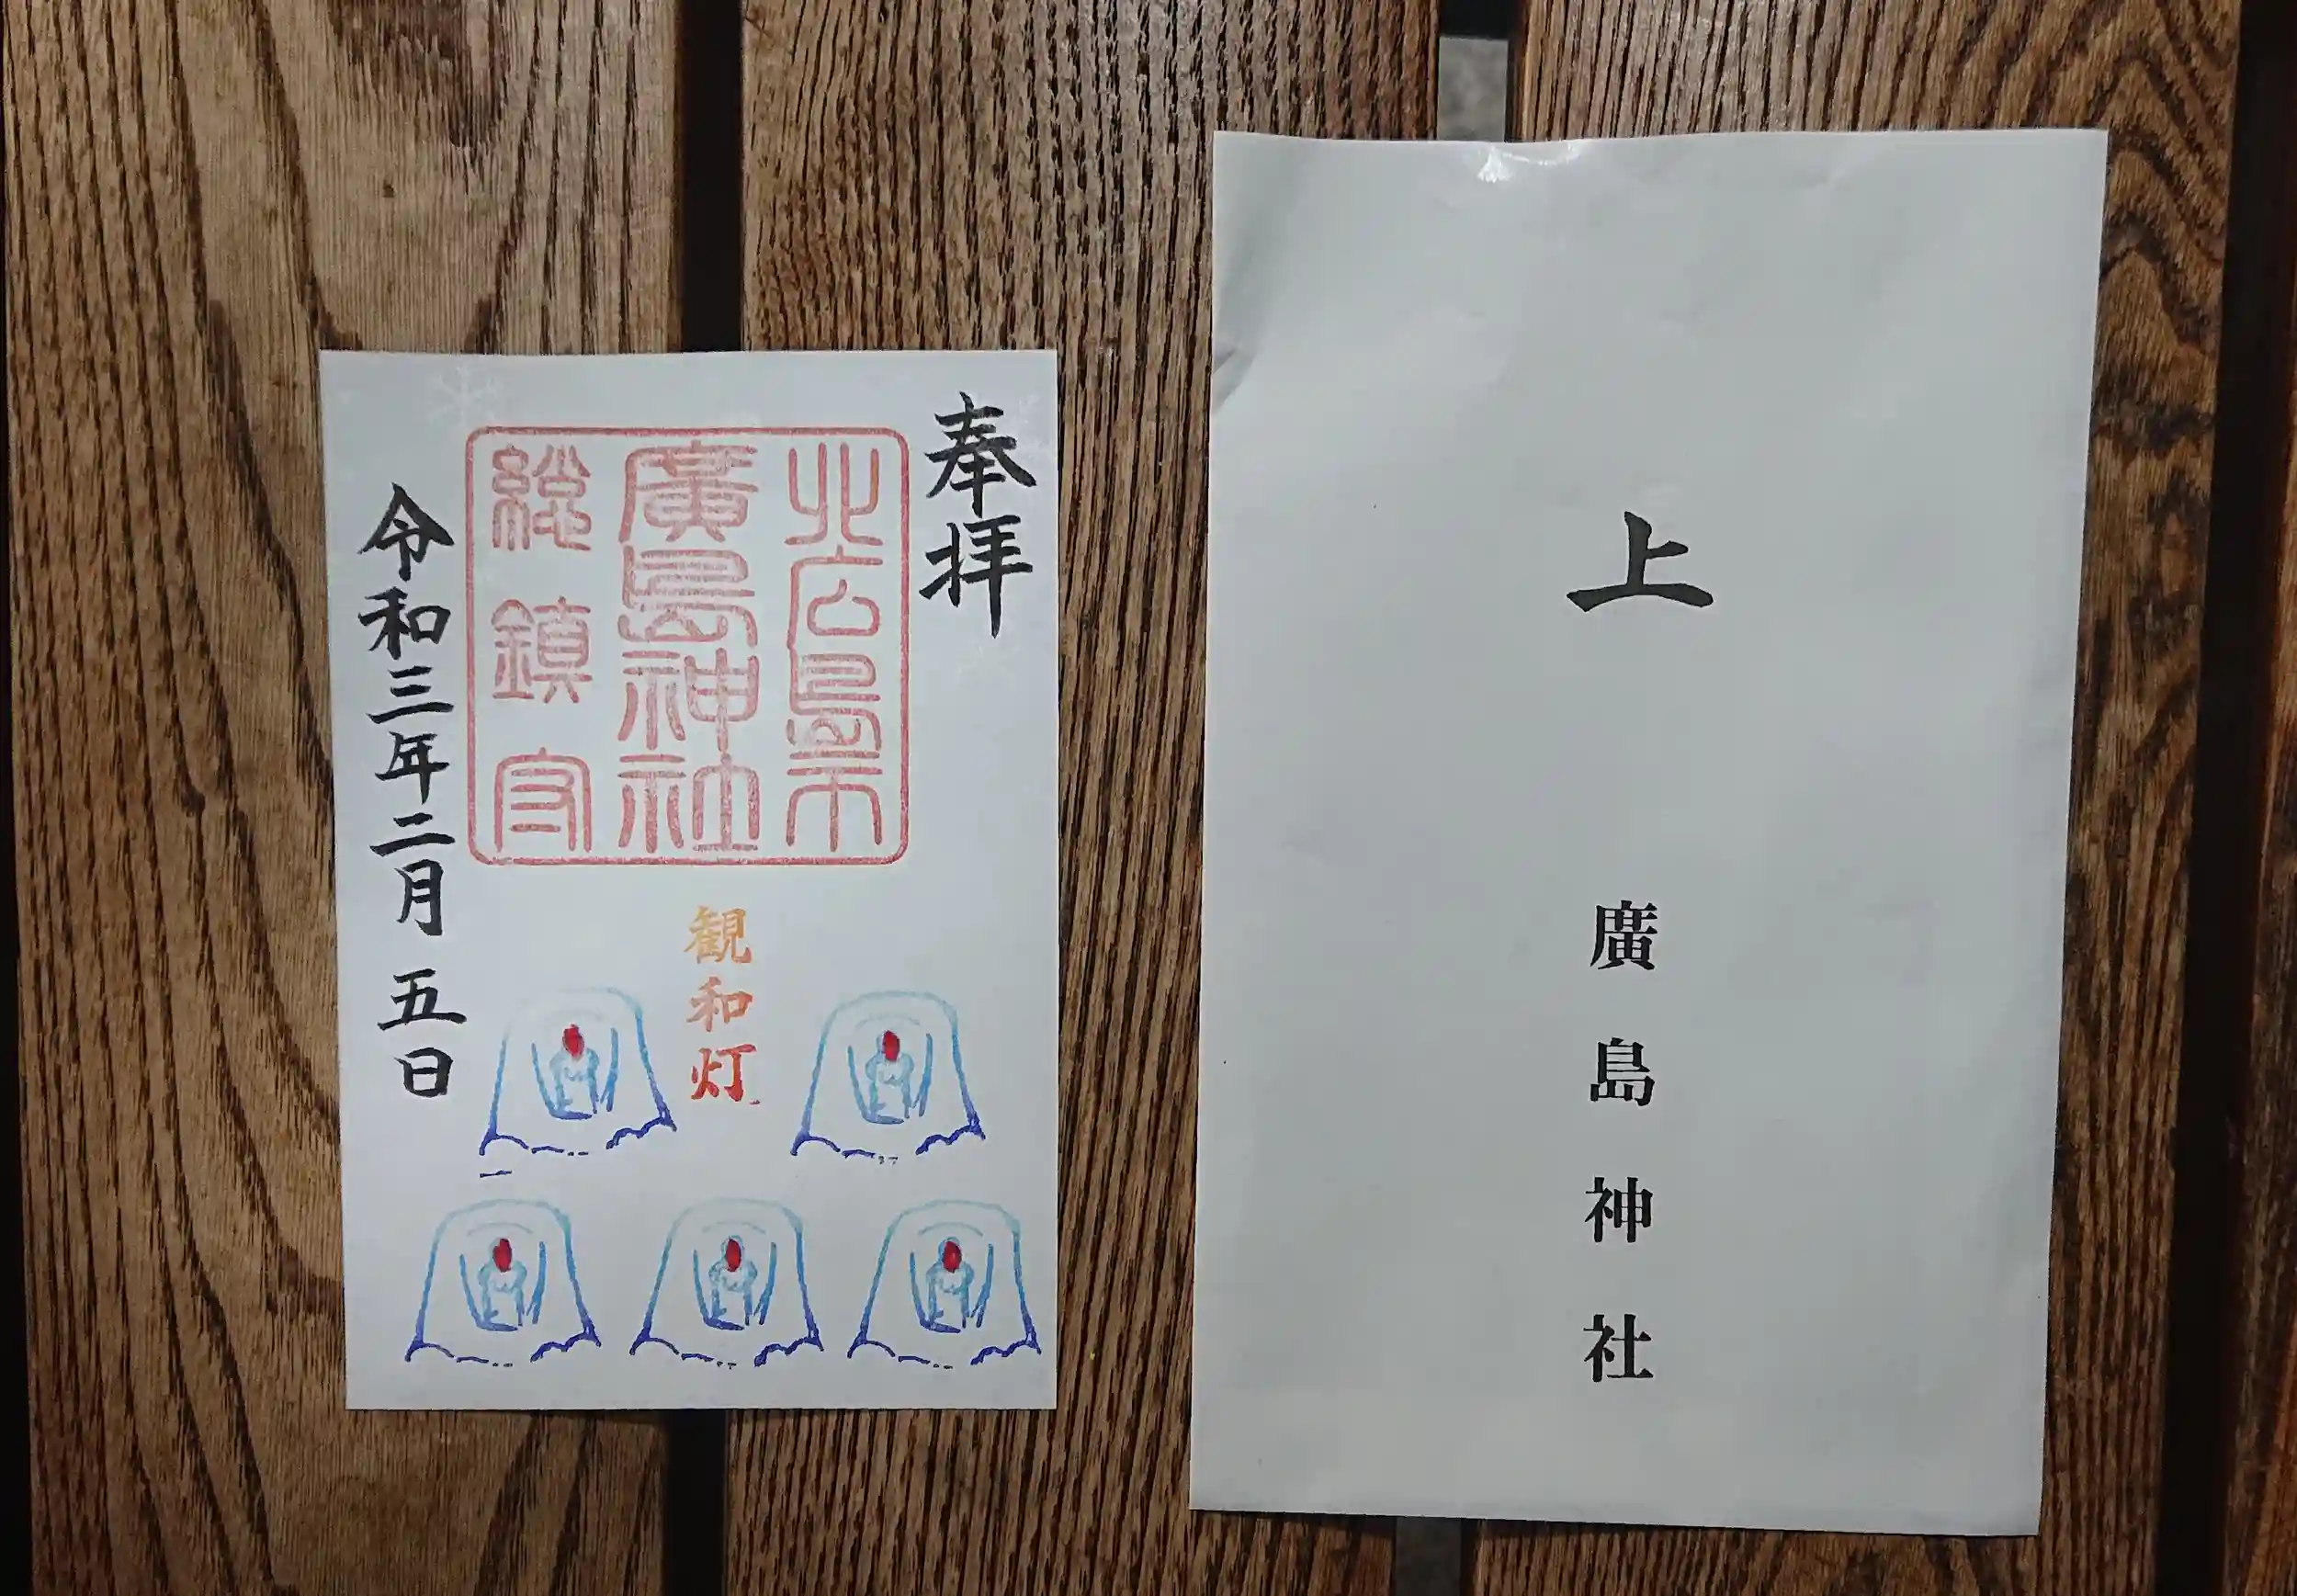 奉拝
北広島市
廣島神社
総鎮守
観和灯
令和三年二月五日
上
廣島神社